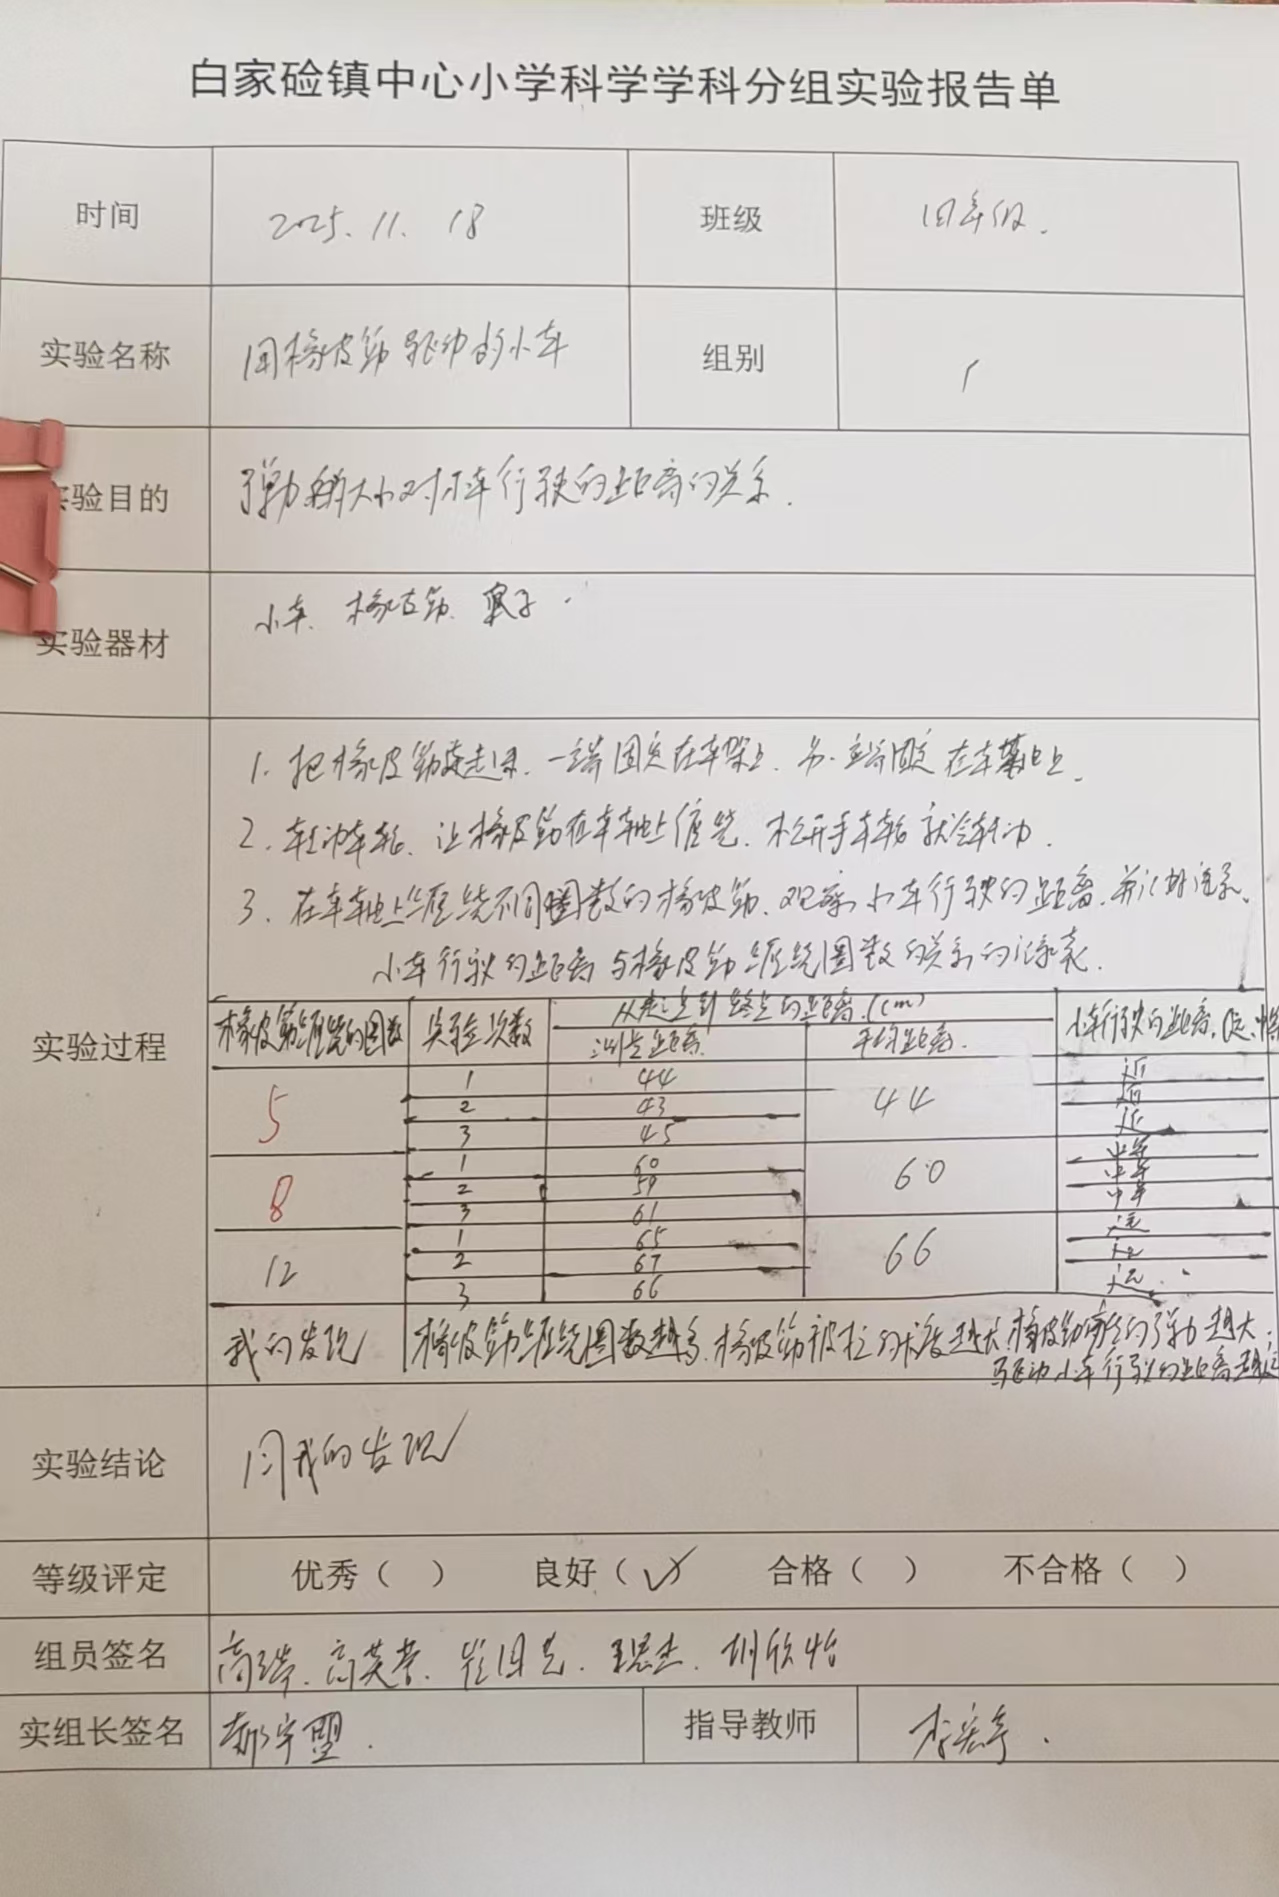 白家硷镇中心小学科学学科分组实验报告单
时间 2025.11.18 班级 四年级.
实验名称 用橡皮筋驱动的小车 组别 1
实验目的 弹力大小对小车行驶的距离的关系.
实验器材 小车、橡皮筋、
实验过程
1. 把橡皮筋连起来,一端固定在车架上,另一端固定在车轴上.
2. 转动车轮,让橡皮筋在车轴上缠绕,松开手车轮就会转动.
3. 在车轴上缠绕不同圈数的橡皮筋,观察小车行驶的距离,并
小车行驶的距离与橡皮筋缠绕圈数的关系的记录表.
橡皮筋缠绕的圈数 实验次数 从起点到终点的距离(cm) 小车行驶的距离
测量距离 平均距离
5 1 44 44 近
2 43 近
3 45 近
8 1 60 60 中等
2 59 中等
3 61 中等
12 1 65 66 远
2 67 远
3 66 远
我的发现 橡皮筋缠绕圈数越多,橡皮筋被拉的长度越长,橡皮筋产生的弹力越大;
驱动小车行驶的距离越远
实验结论 同我的发现
等级评定 优秀( ) 良好(✓) 合格( ) 不合格( )
组员签名 高瑞、高英
实组长签名 郝宇盟. 指导教师